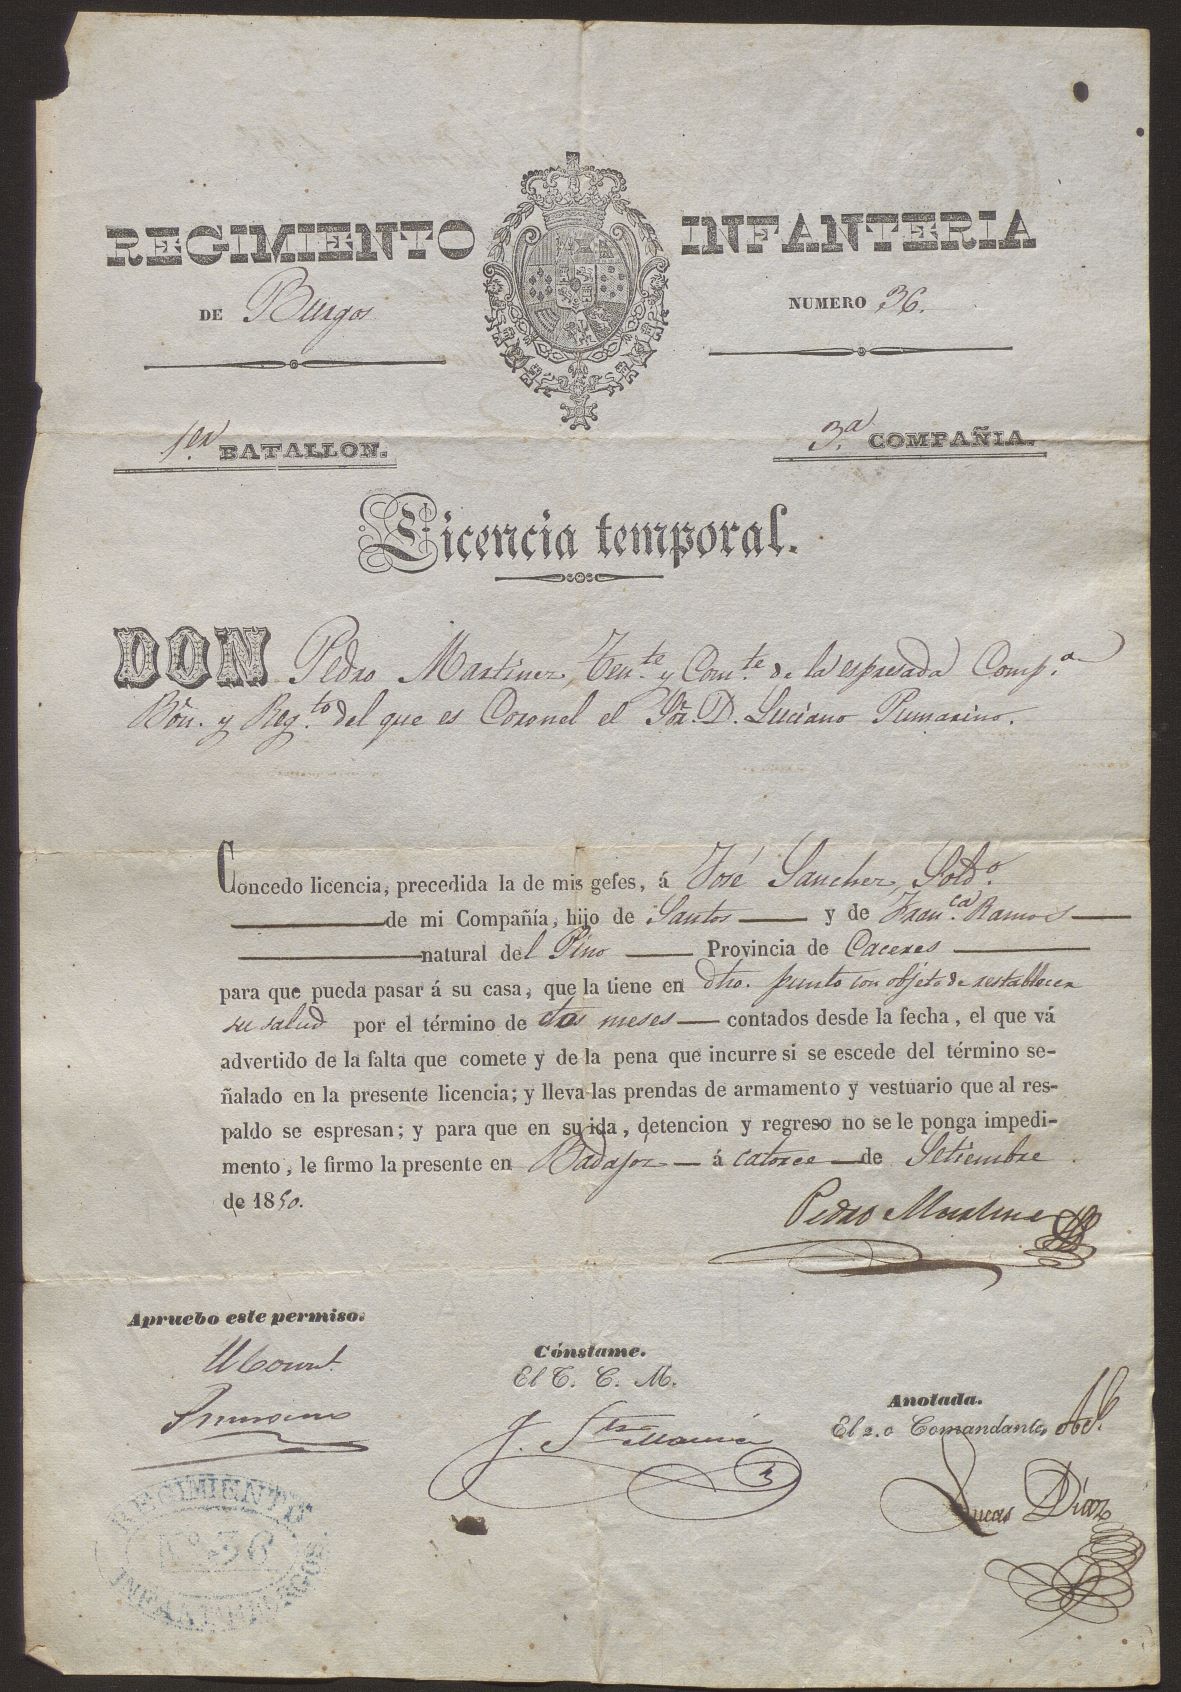 REGIMIENTO INFANTERIA
DE Burgos NUMERO 36.
1er. BATALLON. 3.a COMPAÑIA.
Licencia temporal.
DON Pedro Martinez, Ten.te y Com.te de la espresada Comp.a
Bon. y Reg.to del que es Coronel el Sor. D. Luciano Pumarino.
Concedo licencia, precedida la de mis gefes, á José Sanchez, Sold.o
de mi Compañía, hijo de Santos y de Fran.ca Ramos
natural del Pino Provincia de Caceres
para que pueda pasar á su casa, que la tiene en dho. punto con objeto de restablecer
su salud por el término de dos meses contados desde la fecha, el que vá
advertido de la falta que comete y de la pena que incurre si se escede del término se-
ñalado en la presente licencia; y lleva las prendas de armamento y vestuario que al res-
paldo se espresan; y para que en su ida, detencion y regreso no se le ponga impedi-
mento, le firmo la presente en Badajoz á catorce de Setiembre
de 1850.
Pedro Martinez
Apruebo este permiso.
Pumarino
Cónstame.
El T. C. M.
J. Sta Maria
Anotada.
El 2.o Comandante,
Lucas Diaz
REGIMIENTO
No. 36
INFANT. BURGOS